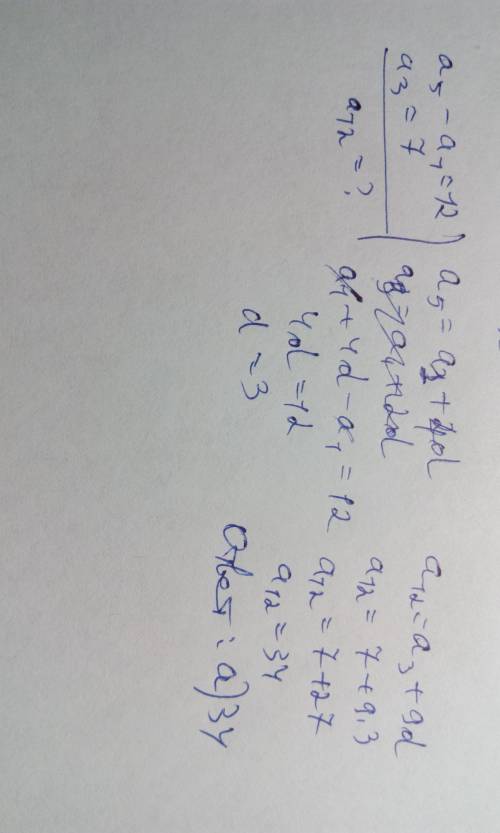 a₅ - a₁ = 12
a₃ = 7
a₁₂ = ?
a₅ = a₁ + 4d
a₁ + 4d - a₁ = 12
4d = 12
d = 3
a₁₂ = a₃ + 9d
a₁₂ = 7 + 9·3
a₁₂ = 7 + 27
a₁₂ = 34
Ответ: а) 34